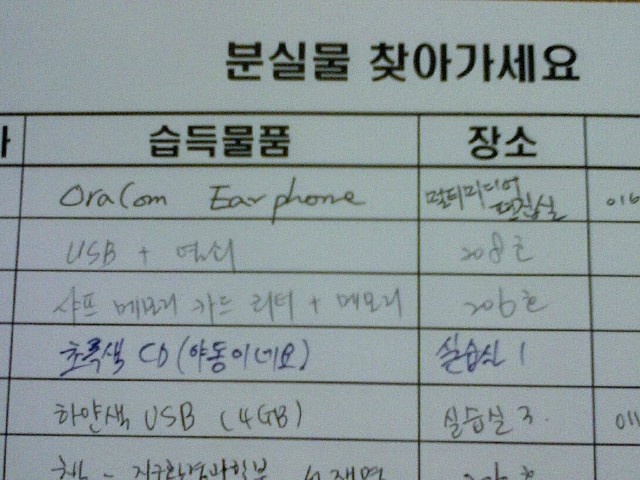 분실물 찾아가세요
습득물품 장소
OraCom Earphone 멀티미디어 편집실 016
USB + 열쇠 208호
샤프 메모리 카드 리터 + 메모리 206호
초록색 CD (야동이네요) 실습실 1
하얀색 USB (4GB) 실습실 3. 011
책 - 지구환경과학부